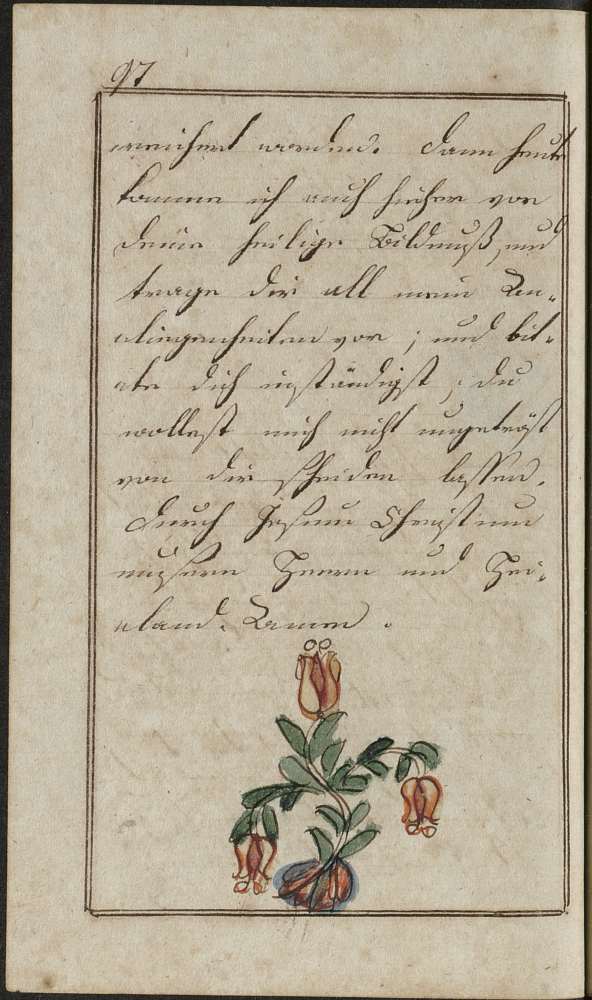 97
reichert worden. Dann heute
komme ich auch hieher vor
deine heilige Bildnuß, und
trage dir all mein An-
liegenheiten vor; und bit-
te dich inständigst, du
wollest mich nicht ungetröst
von dir scheiden lassen.
Durch Jesum Christum
unsern Herrn und Hei-
land. Amen.